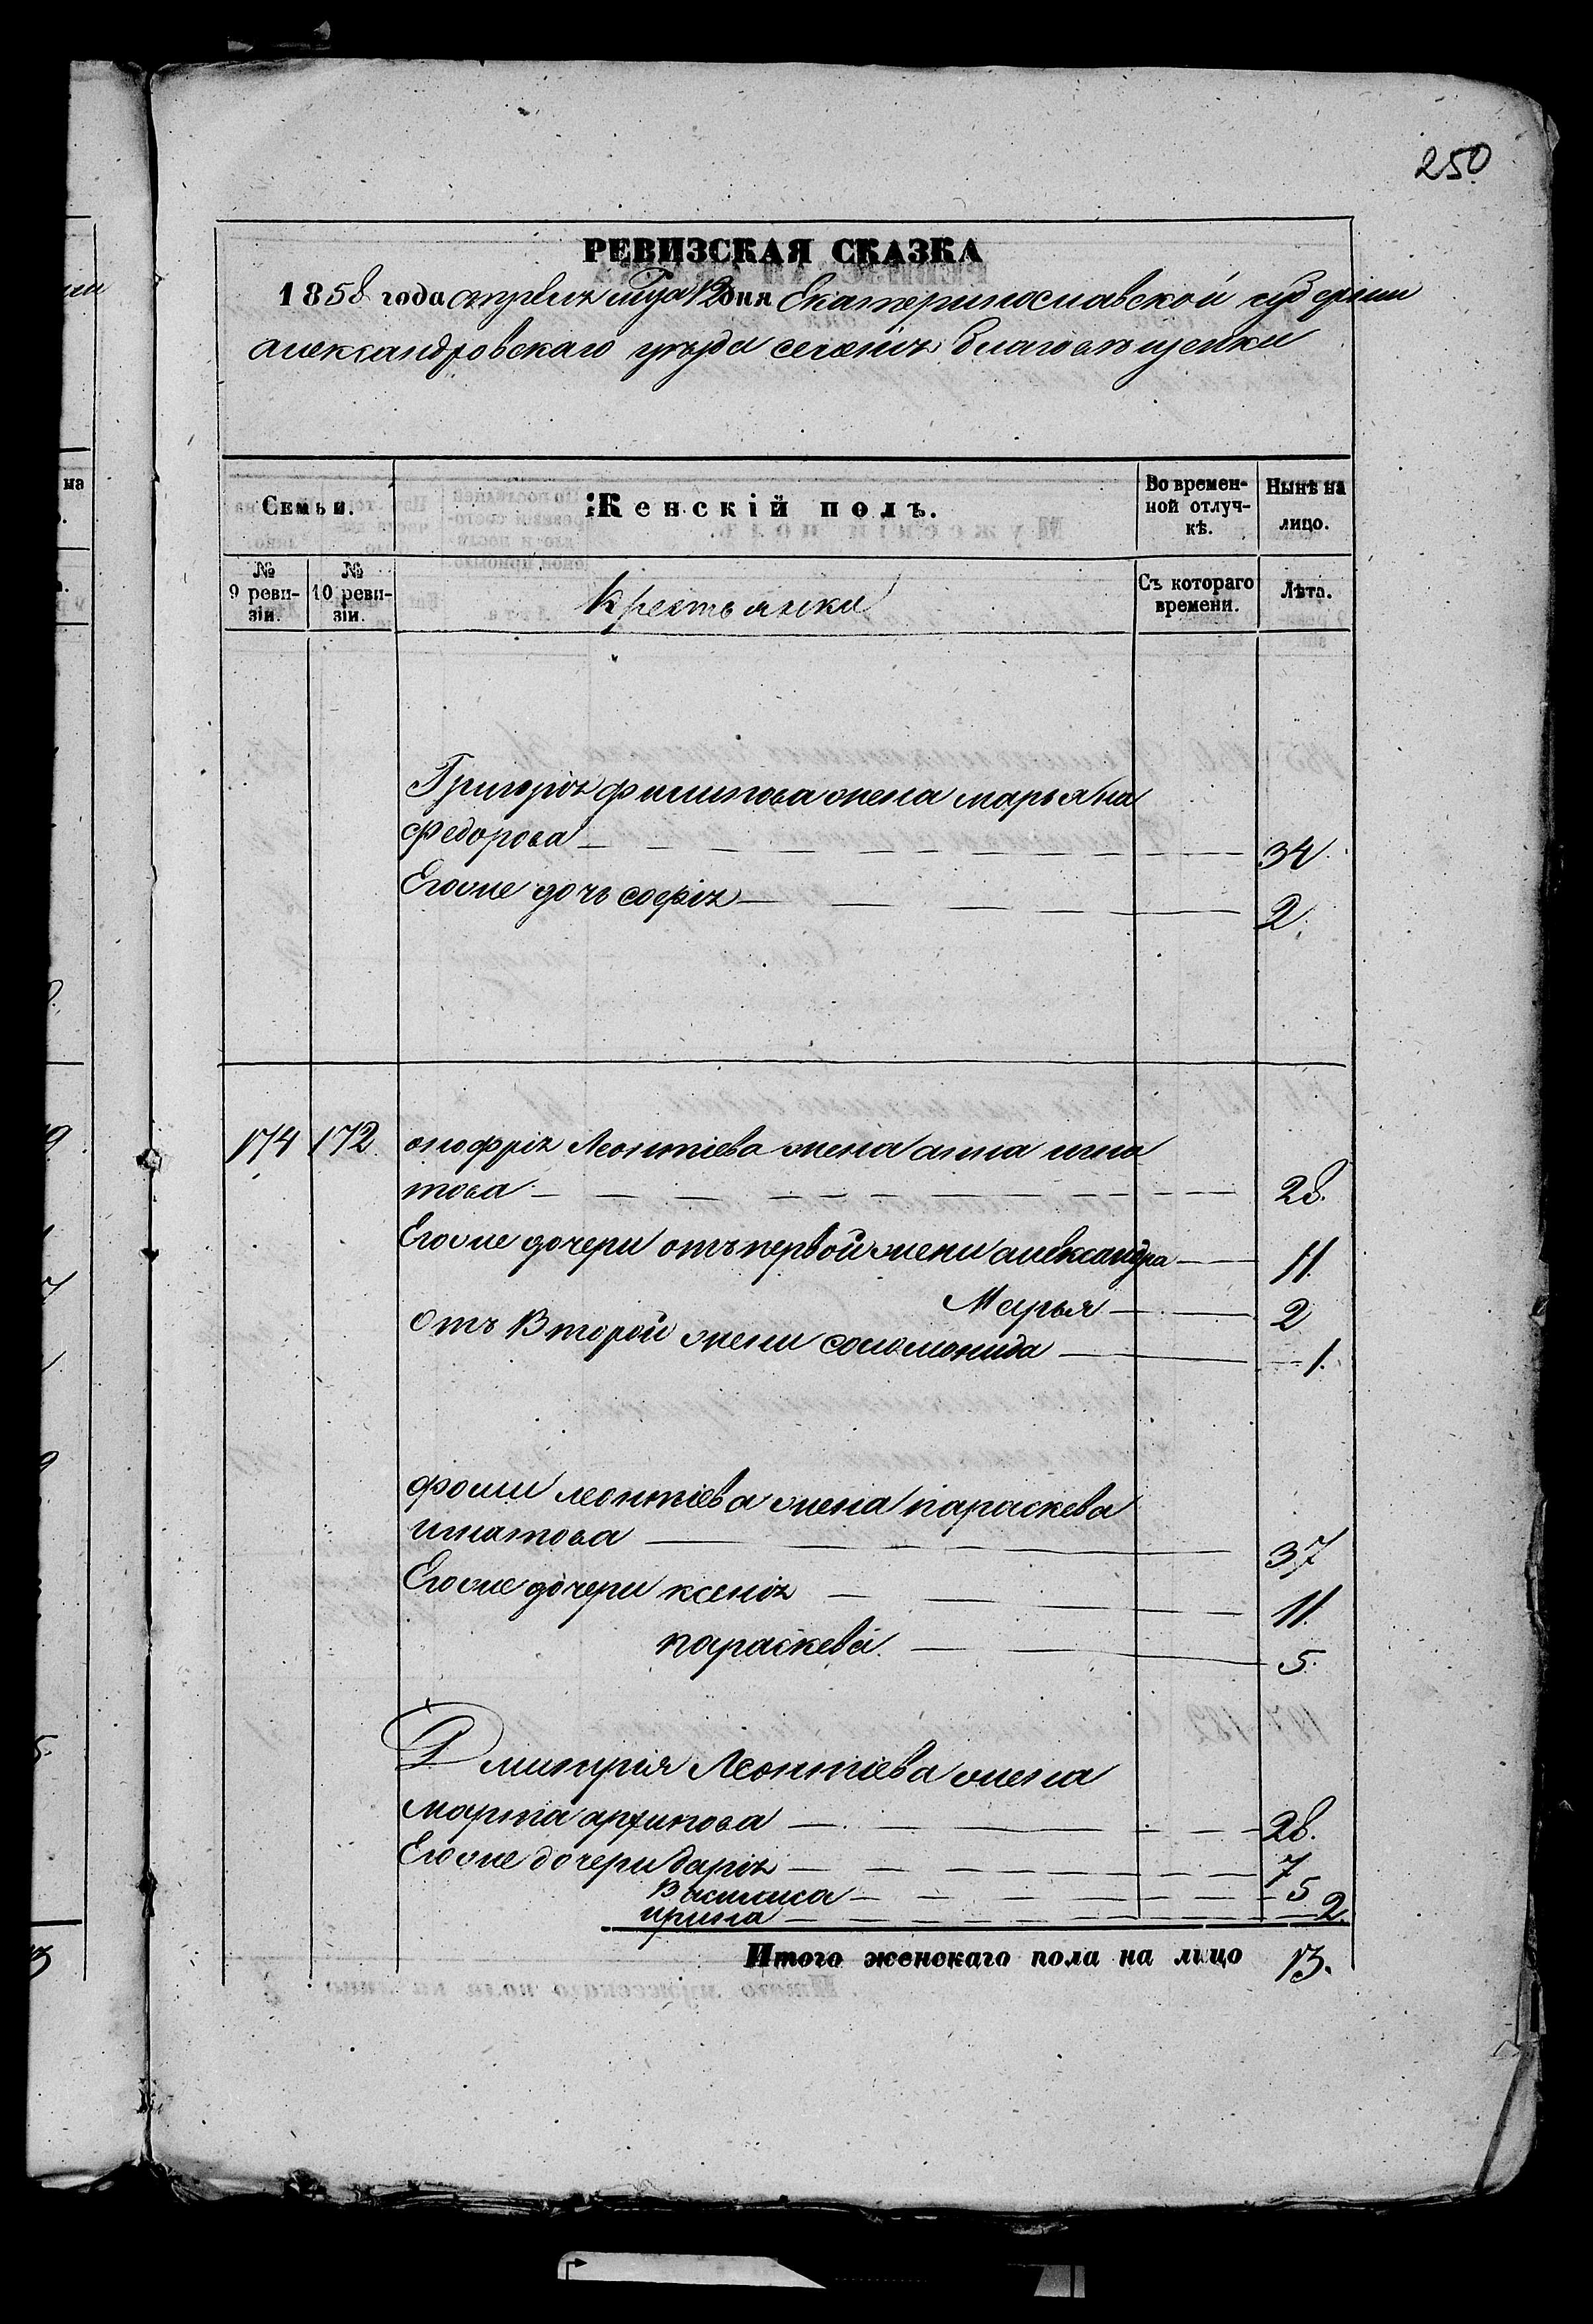 250
РЕВИЗСКАЯ СКАЗКА
1858 года апреля мца 12 дня Екатеринославской губернии
александровскаго уезда селенія благовещенки
Семьи.
Женскій полъ.
Во времен-
ной отлуч-
кѣ.
Нынѣ на
лицо.
№
9 реви-
зіи.
№
10 реви-
зіи.
крестьянки
Съ котораго
времени.
Лѣта.
Григорія филипова жена марьяна
Федорова 34.
Егоже дочь софія 2.
174 172. онофрія Леонтіева жена анна игна
това 28.
Егоже дочери отъ первой жени александра 11.
Марья 2
отъ Второй жени соломонида 1.
фоми леонтіева жена параскева
игнатова 37
Егоже дочери ксенія 11.
параскева. 5.
Дмитрія Леонтіева жена
марта архипова 28.
Егоже дочери дарія 7
Василиса 5
ирина 2.
Итого женскаго пола на лицо 13.